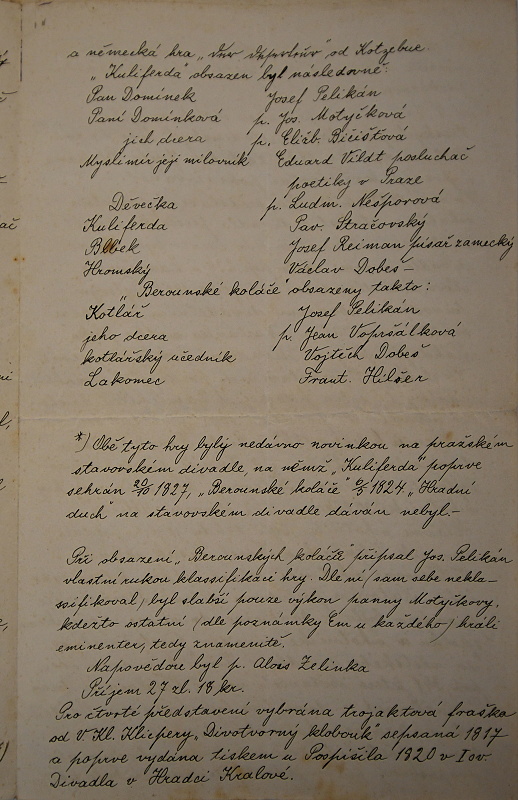 a německá hra „der Deserteur" od Kotzebue.
„Kuliferda" obsazen byl následovně:
Pan Domínek Josef Pelikán
Paní Domínková p. Jos. Motyčková
jich dcera p. Eližb. Bičišťová
Myslimír její milovník Eduard Vildt posluchač
poetiky v Praze
Děvečka p. Ludm. Nešporová
Kuliferda Pav. Stračovský
Blbek Josef Reiman písař zámecký
Hromský Václav Dobeš –
„Berounské koláče" obsazeny takto:
Kotlář Josef Pelikán
jeho dcera p. Jean Vopršálková
kotlářský učedník Vojtěch Dobeš
Lakomec Frant. Hilšer
*) Obě tyto hry byly nedávno novinkou na pražském
stavovském divadle, na němž „Kuliferda" poprve
sehrán 20/10 1827, „Berounské koláče" 6/5 1824. „Hradní
duch" na stavovském divadle dáván nebyl. –
Při obsazení „Berounských koláčů" připsal Jos. Pelikán
vlastní rukou klassifikaci hry. Dle ní /sam sebe nekla-
ssifikoval/ byl slabší pouze výkon panny Motyčkovy,
kdežto ostatní /dle poznámky Em u každého/ hráli
eminenter, tedy znamenitě.
Napovědou byl p. Alois Zelinka
Příjem 27 zl. 18 kr.
Pro čtvrté představení vybrána trojaktová fraška
od V. Kl. Klicpery „Divotvorný klobouk" sepsaná 1817
a poprve vydána tiskem u Pospíšila 1820 v I sv.
Divadla v Hradci Králové.